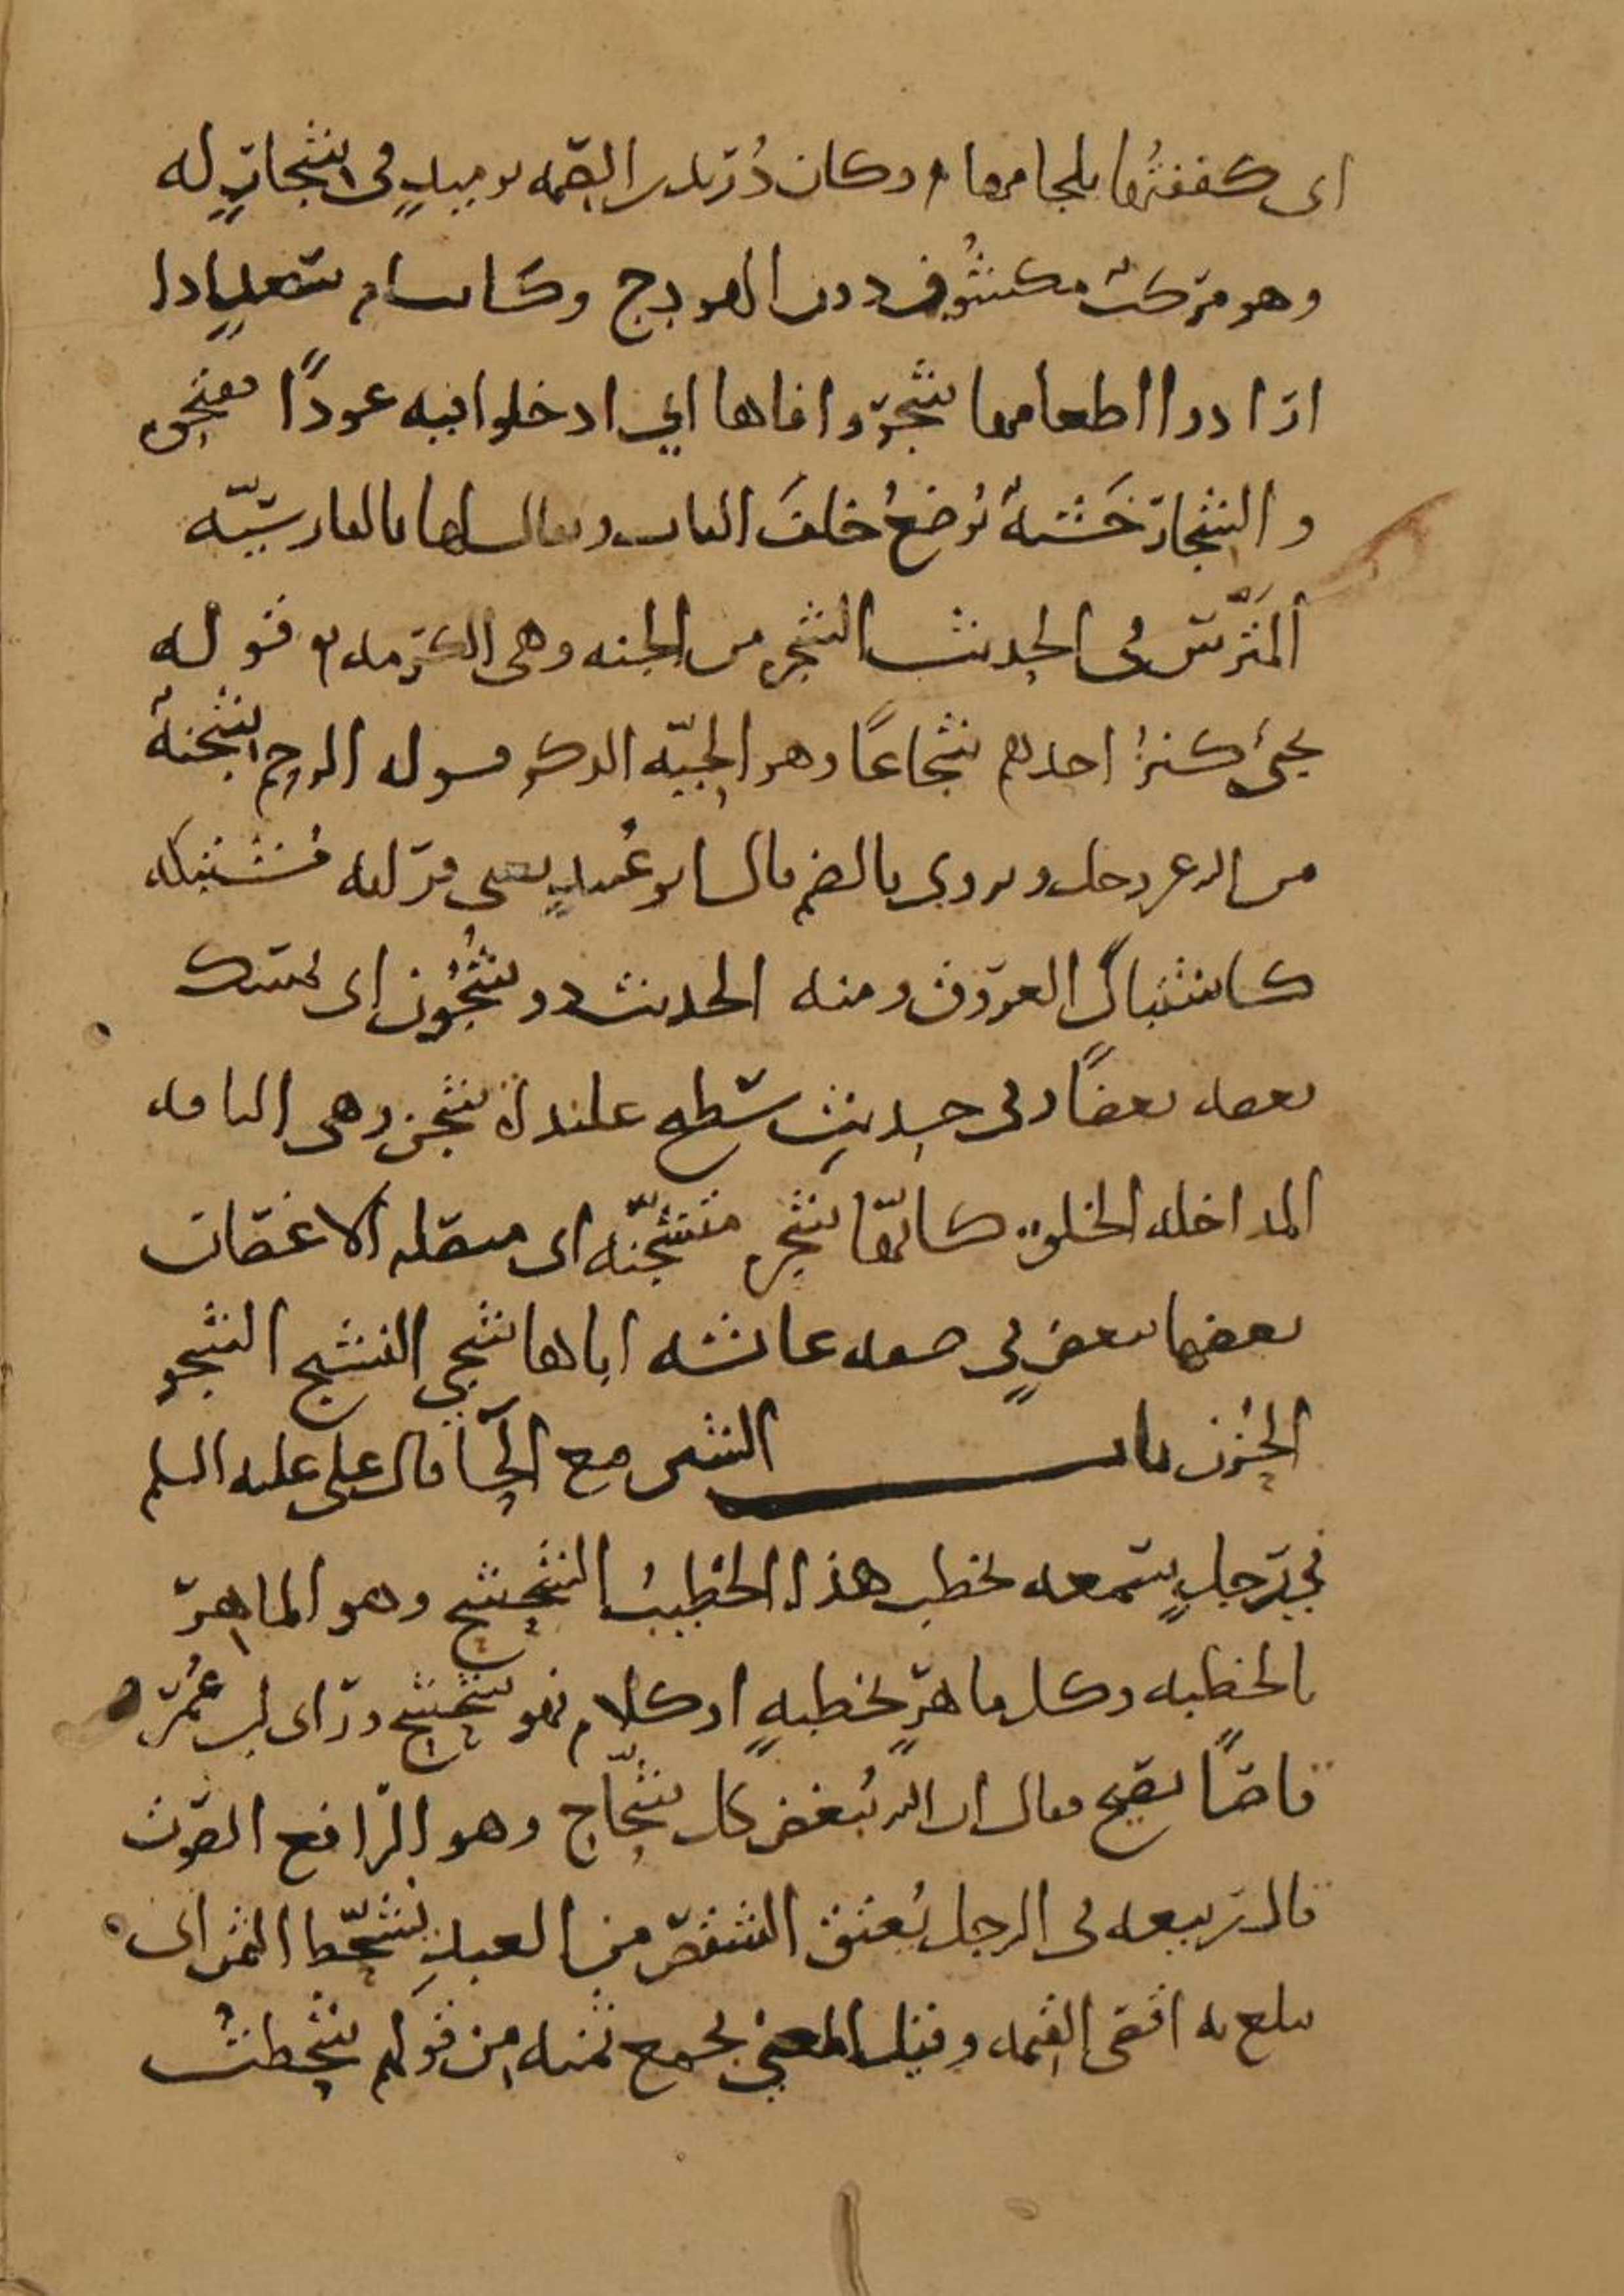 اى كففتُها بلجامها وكان دُرَيد بن الصمه يوميدٍ فى شجارٍ له
وهو مركب مكشُوف دون الهودج وكانت ام سَعدٍ اذا
ارادوا اطعامها شجَروا فاها اي ادخلوا فيه عودًا ففتحوه
والشجار خَشبةٌ تُوضعُ خلفَ الباب ويقال لها بالفارسيّه
المَتَّرس فى الحديث الشجره من الجنه وهى الكرمه قوله
يجئ كنزُ احدهم شجاعًا وهو الحيّه الذكر قوله الرحم شجنةٌ
من الله عز وجل ويروى بالضم قال ابو عُبيدٍ يعنى قرابه مُشتبكه
كاشتباك العروق ومنه الحديث ذو شُجُون اى يمسك
بعضه بعضًا وفى حديث سَطِيح علنداة شجن وهى الناقه
المداخله الخلق كانّها شجره متشجّنه اى متصله الاغصان
بعضها ببعضٍ فى صفه عائشه اباها شجى النشيج الشجو
الحُزن باب الشين مع الحآ قال على عليه السلم
في رجلٍ سمعه يخطب هذا الخطيبُ الشحشح وهو الماهر
بالخطبه وكل ماهرٍ بخطبهٍ او كلام فهو شحشح وراى ابن عُمَر
قاصًّا يصيح فقال ان الله يُبغض كل شحّاج وهو الرّافع الصّوت
قال ربيعه فى الرجل يُعتق الشقص من العبدِ يشحّط الثمن اى
يبلغ به اقصى القيمه وقيل المعني يجمع ثمنه من قولهم شحطتُ